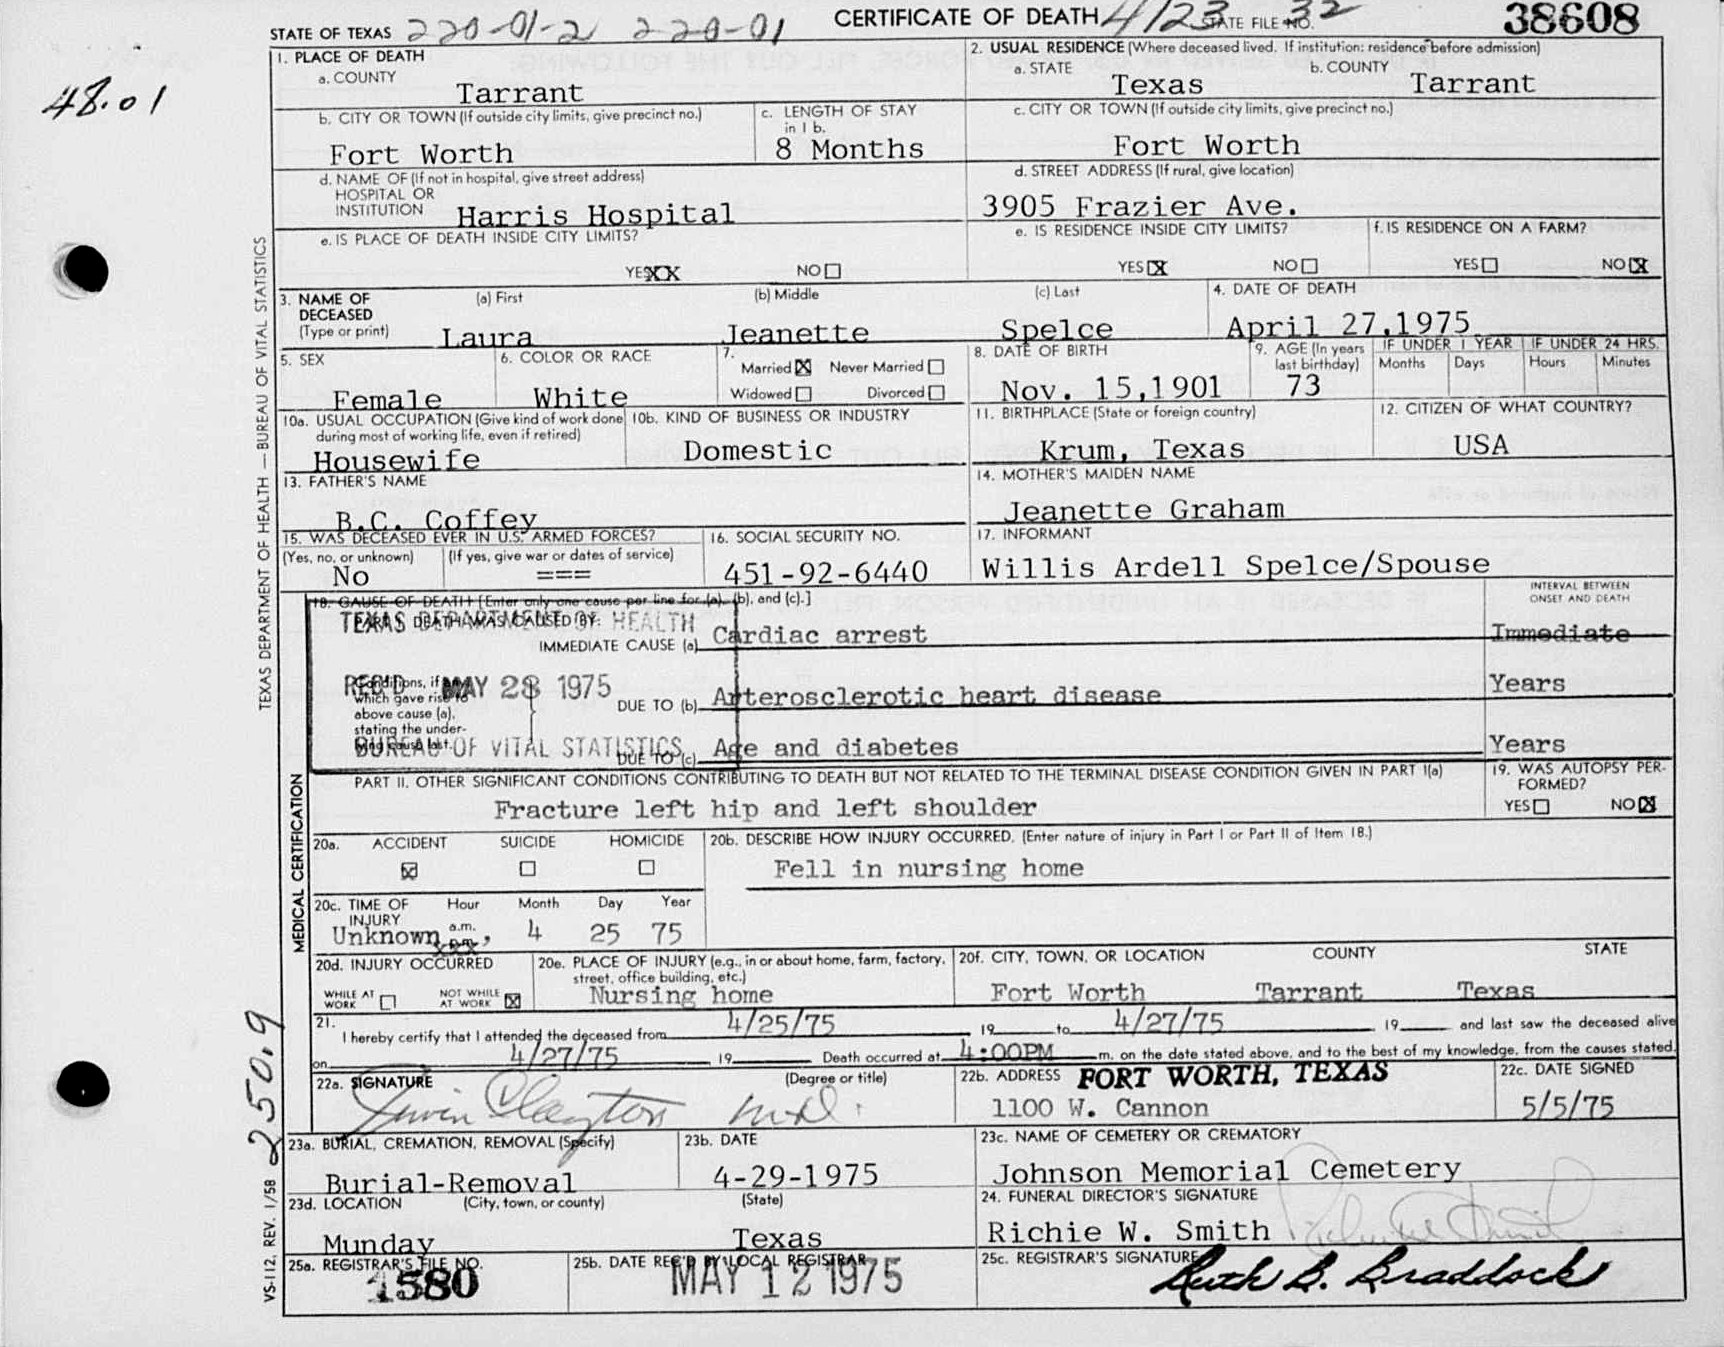 STATE OF TEXAS 220-01-2 220-01 CERTIFICATE OF DEATH 4123 STATE FILE NO. 32 38608
48.01
1. PLACE OF DEATH
a. COUNTY
Tarrant
2. USUAL RESIDENCE (Where deceased lived. If institution: residence before admission)
a. STATE
Texas
b. COUNTY
Tarrant
b. CITY OR TOWN (If outside city limits, give precinct no.)
Fort Worth
c. LENGTH OF STAY
in 1 b.
8 Months
c. CITY OR TOWN (If outside city limits, give precinct no.)
Fort Worth
d. NAME OF (If not in hospital, give street address)
HOSPITAL OR
INSTITUTION Harris Hospital
d. STREET ADDRESS (If rural, give location)
3905 Frazier Ave.
e. IS PLACE OF DEATH INSIDE CITY LIMITS?
YES XX NO
e. IS RESIDENCE INSIDE CITY LIMITS?
YES X NO
f. IS RESIDENCE ON A FARM?
YES NO X
3. NAME OF
DECEASED
(Type or print)
(a) First
Laura
(b) Middle
Jeanette
(c) Last
Spelce
4. DATE OF DEATH
April 27,1975
5. SEX
Female
6. COLOR OR RACE
White
7.
Married X Never Married
Widowed Divorced
8. DATE OF BIRTH
Nov. 15,1901
9. AGE (In years
last birthday)
73
IF UNDER 1 YEAR IF UNDER 24 HRS.
Months Days Hours Minutes
10a. USUAL OCCUPATION (Give kind of work done
during most of working life, even if retired)
Housewife
10b. KIND OF BUSINESS OR INDUSTRY
Domestic
11. BIRTHPLACE (State or foreign country)
Krum, Texas
12. CITIZEN OF WHAT COUNTRY?
USA
13. FATHER'S NAME
B.C. Coffey
14. MOTHER'S MAIDEN NAME
Jeanette Graham
15. WAS DECEASED EVER IN U.S. ARMED FORCES?
(Yes, no, or unknown) (If yes, give war or dates of service)
No ===
16. SOCIAL SECURITY NO.
451-92-6440
17. INFORMANT
Willis Ardell Spelce/Spouse
18. CAUSE OF DEATH [Enter only one cause per line for (a), (b), and (c).]
INTERVAL BETWEEN
ONSET AND DEATH
PART I. DEATH WAS CAUSED BY:
TEXAS DEPARTMENT OF HEALTH
IMMEDIATE CAUSE (a) Cardiac arrest Immediate
REC'D MAY 28 1975
Conditions, if any,
which gave rise to
above cause (a),
stating the under-
lying cause last.
DUE TO (b) Arterosclerotic heart disease Years
BUREAU OF VITAL STATISTICS
DUE TO (c) Age and diabetes Years
PART II. OTHER SIGNIFICANT CONDITIONS CONTRIBUTING TO DEATH BUT NOT RELATED TO THE TERMINAL DISEASE CONDITION GIVEN IN PART I(a)
Fracture left hip and left shoulder
19. WAS AUTOPSY PER-
FORMED?
YES NO X
20a. ACCIDENT SUICIDE HOMICIDE
X
20b. DESCRIBE HOW INJURY OCCURRED. (Enter nature of injury in Part I or Part II of Item 18.)
Fell in nursing home
20c. TIME OF
INJURY
Hour Month Day Year
Unknown a.m. p.m. xxx, 4 25 75
20d. INJURY OCCURRED
WHILE AT
WORK
NOT WHILE
AT WORK X
20e. PLACE OF INJURY (e.g., in or about home, farm, factory,
street, office building, etc.)
Nursing home
20f. CITY, TOWN, OR LOCATION COUNTY STATE
Fort Worth Tarrant Texas
21.
I hereby certify that I attended the deceased from 4/25/75 19 to 4/27/75 19 and last saw the deceased alive
on 4/27/75 19 Death occurred at 4:00PM m. on the date stated above, and to the best of my knowledge, from the causes stated.
22a. SIGNATURE (Degree or title)
Irvin Clayton M.D.
22b. ADDRESS FORT WORTH, TEXAS
1100 W. Cannon
22c. DATE SIGNED
5/5/75
23a. BURIAL, CREMATION, REMOVAL (Specify)
Burial-Removal
23b. DATE
4-29-1975
23c. NAME OF CEMETERY OR CREMATORY
Johnson Memorial Cemetery
23d. LOCATION (City, town, or county) (State)
Munday Texas
24. FUNERAL DIRECTOR'S SIGNATURE
Richie W. Smith
25a. REGISTRAR'S FILE NO.
1580
25b. DATE REC'D BY LOCAL REGISTRAR
MAY 12 1975
25c. REGISTRAR'S SIGNATURE
Ruth B. Braddock
TEXAS DEPARTMENT OF HEALTH — BUREAU OF VITAL STATISTICS
MEDICAL CERTIFICATION
VS-112, REV. 1/58
250.9